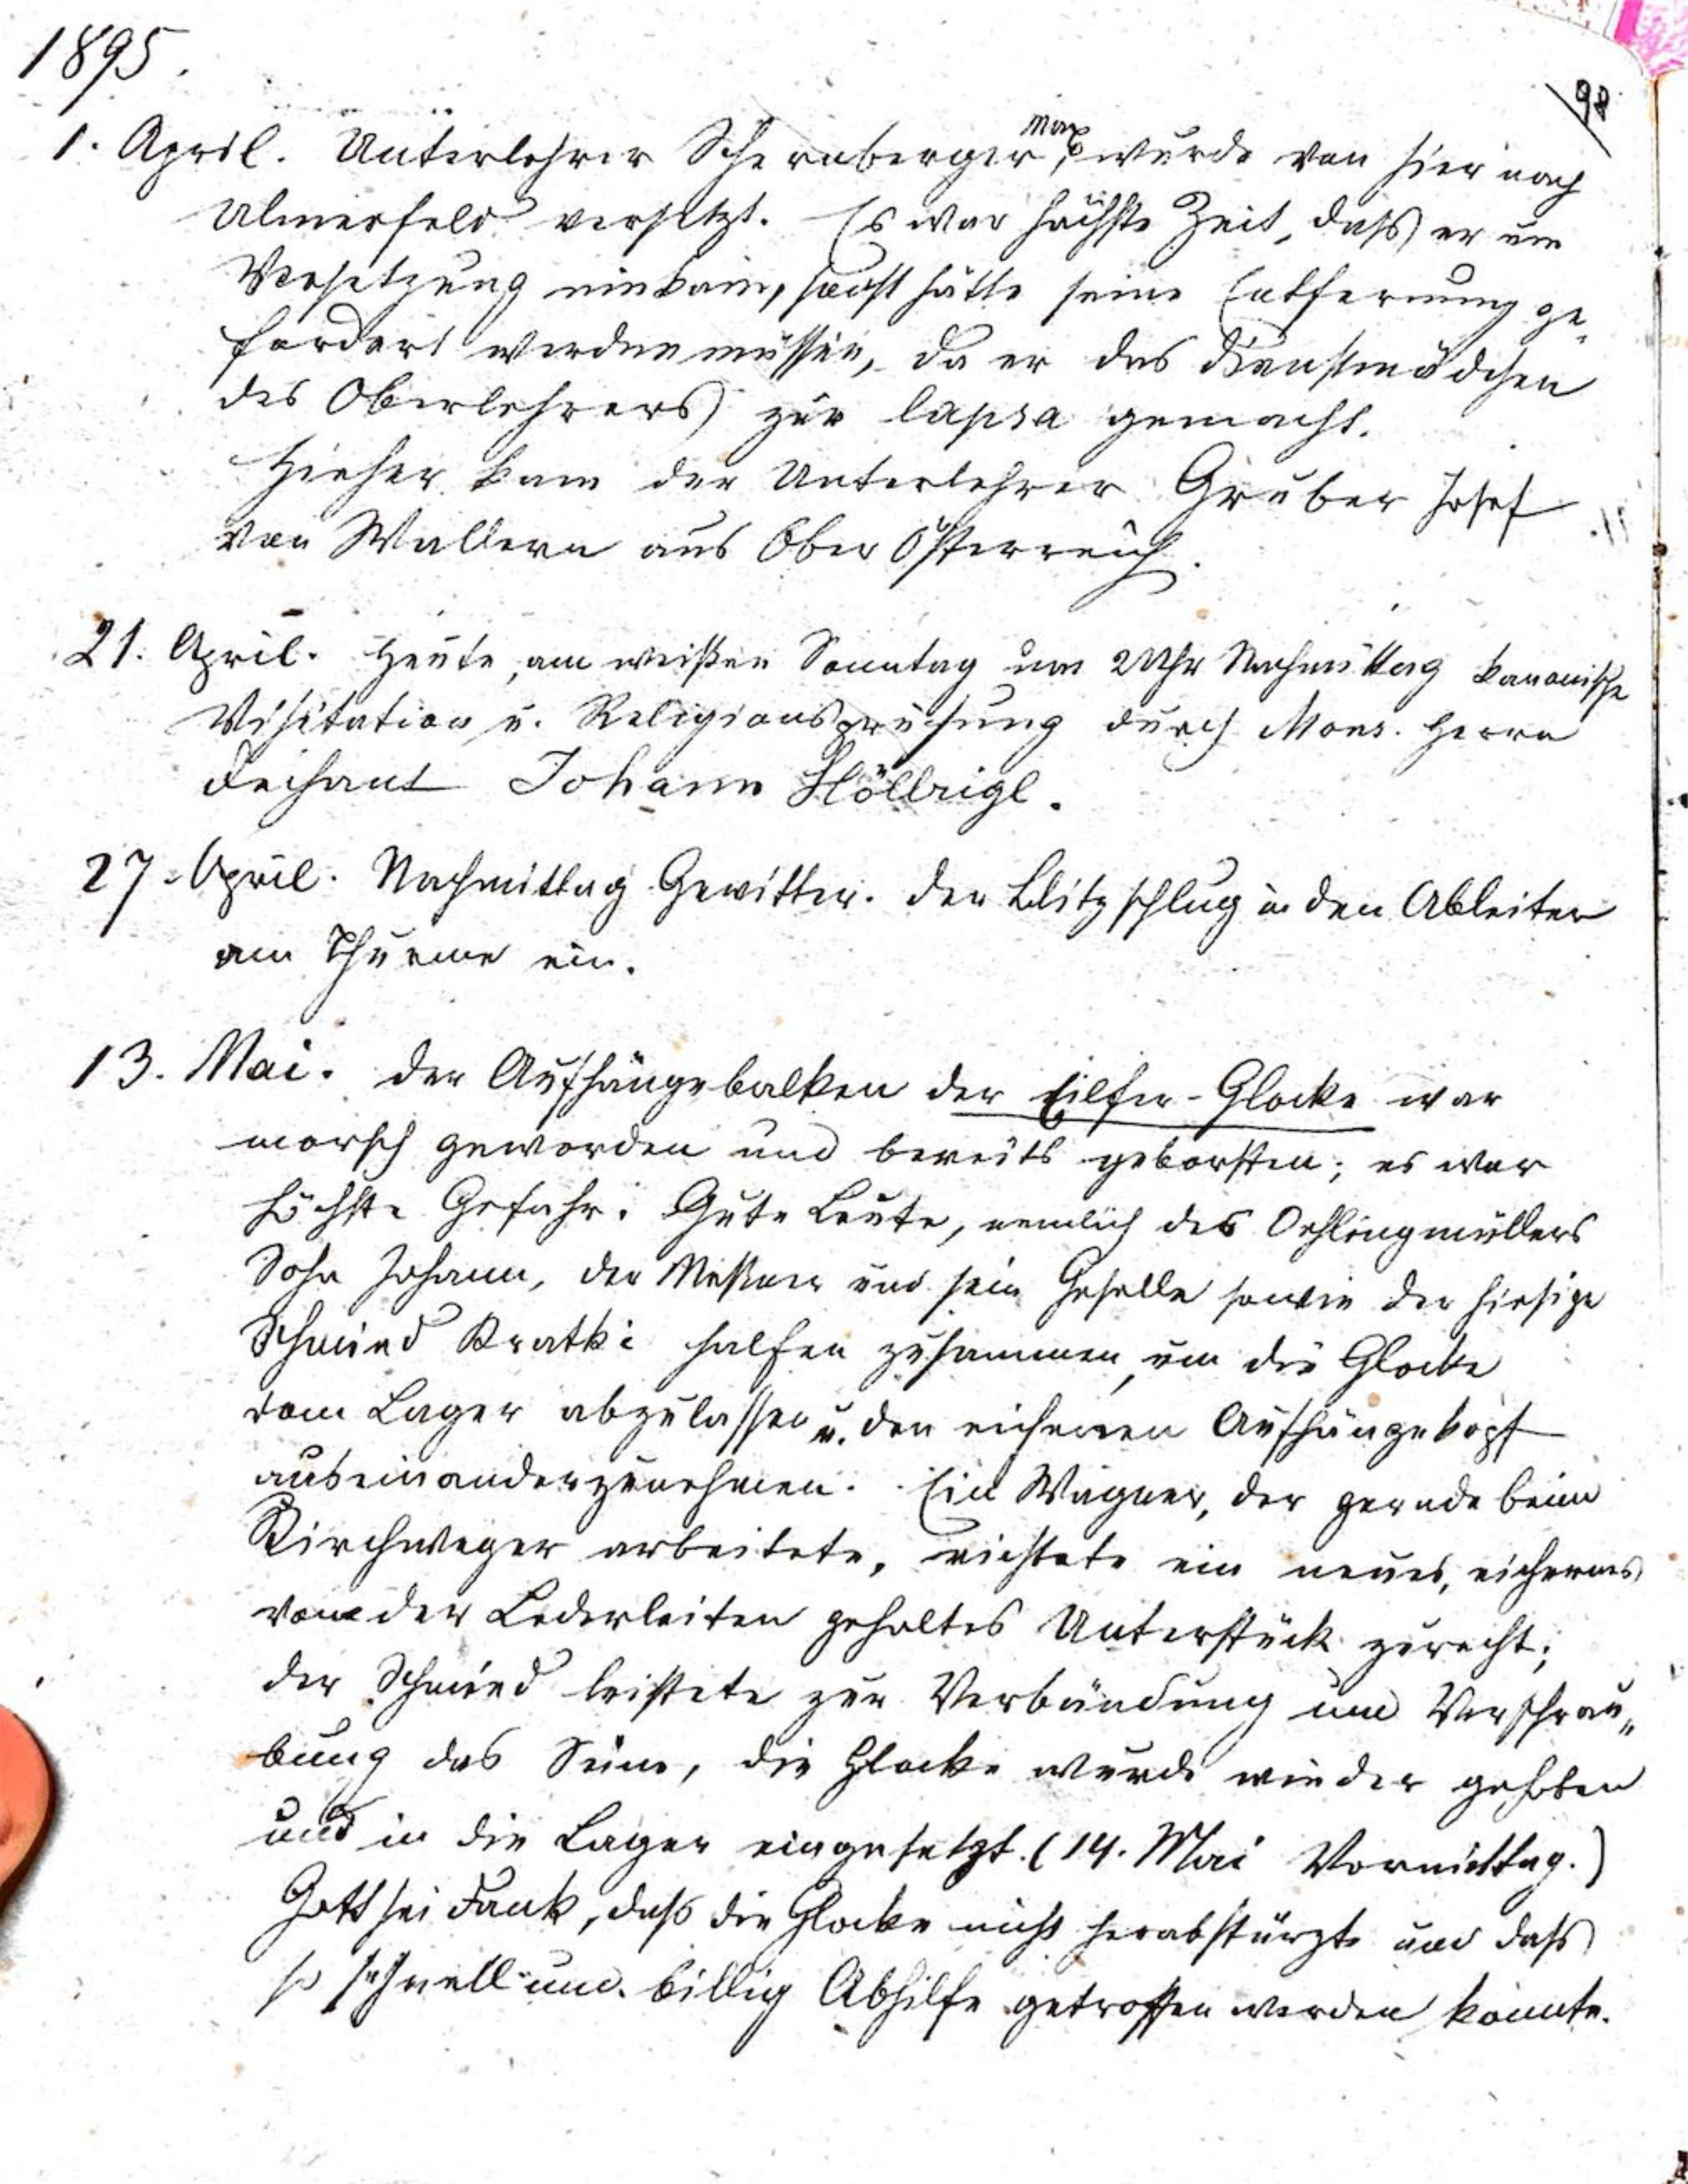 1895.
98
1. April. Unterlehrer Schernberger Max, wurde von hier nach
Ulmerfeld versetzt. Es war höchste Zeit, dass er um
Versetzung einkam, sonst hätte seine Entfernung ge-
fordert werden müssen, da er das Dienstmädchen
des Oberlehrers zur lapsa gemacht.
Hieher kam der Unterlehrer Gruber Josef
von Wallern aus Ober Österreich.
21. April. Heute, am weißen Sonntag um 2 Uhr Nachmittag kanonische
Visitation u. Religionsprüfung durch Mons. Herrn
Dechant Johann Höllrigl.
27. April. Nachmittag Gewitter. Der Blitz schlug in den Ableiter
am Thurme ein.
13. Mai. Der Aufhängebalken der Eilfer-Glocke war
morsch geworden und bereits geborsten; es war
höchste Gefahr. Gute Leute, nemlich des Oehlingmüllers
Sohn Johann, der Meßner und sein Geselle sowie der hiesige
Schmied Kratki halfen zusammen, um die Glocke
vom Lager abzulassen u. den eichenen Aufhängekopf
auseinanderzunehmen. Ein Wagner, der gerade beim
Kirchweger arbeitete, richtete ein neues, eichernes
von der Lederleiten geholtes Unterstück zurecht;
der Schmied leistete zur Verbändung und Verschrau-
bung das Seine, die Glocke wurde wieder gehoben
und in die Lager eingesetzt. (14. Mai Vormittag.)
Gott sei Dank, daß die Glocke nicht herabstürzte und dass
so schnell und billig Abhilfe getroffen werden konnte.